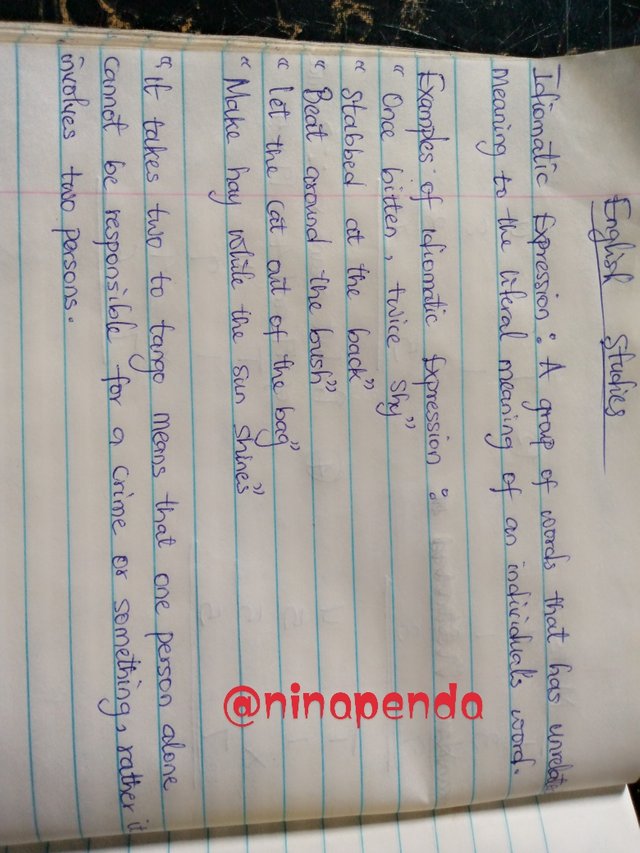 English Studies
Idiomatic Expression: A group of words that has unrelated
meaning to the literal meaning of an individual's word.
Examples of idiomatic Expression:
“Once bitten, twice shy”
“Stabbed at the back”
“Beat around the bush”
“Let the cat out of the bag”
“Make hay while the sun shines”
“it takes two to tango means that one person alone
cannot be responsible for a crime or something, rather it
involves two persons.
@ninapenda